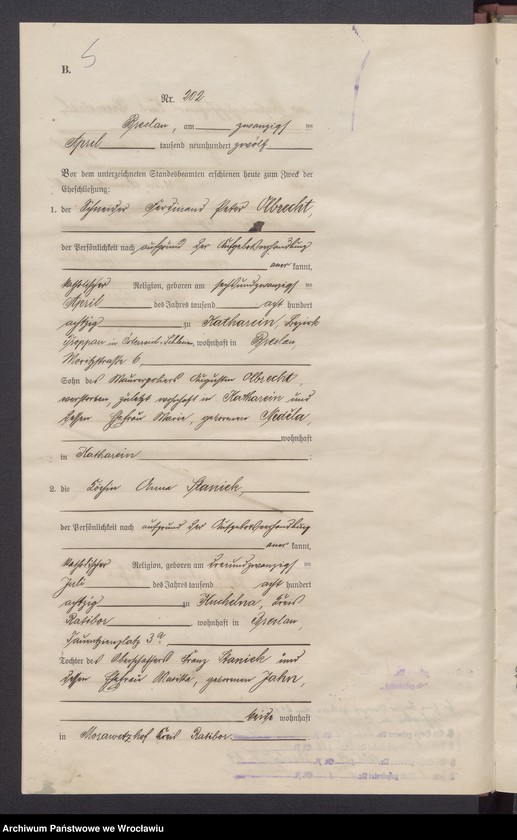 B. 5
Nr. 202
Breslau, am zwanzigsten
April tausend neunhundert zwölf
Vor dem unterzeichneten Standesbeamten erschienen heute zum Zweck der
Eheschließung:
1. der Schneider Ferdinand Peter Albrecht,
der Persönlichkeit nach aufgrund der Aufgebotsverhandlung
aner kannt,
katholischer Religion, geboren am sechsundzwanzigsten
April des Jahres tausend acht hundert
achtzig zu Katharein, Bezirk
Troppau in Österreich-Schlesien, wohnhaft in Breslau,
Moritzstraße 6,
Sohn des Maurerpoliers Augustin Albrecht,
verstorben, zuletzt wohnhaft in Katharein und
dessen Ehefrau Marie, geborenen Neděla,
wohnhaft
in Katharein
2. die Köchin Anna Staniek,
der Persönlichkeit nach aufgrund der Aufgebotsverhandlung
aner kannt,
katholischer Religion, geboren am dreiundzwanzigsten
Juli des Jahres tausend acht hundert
achtzig zu Kuchelna, Kreis
Ratibor wohnhaft in Breslau,
Tauentzienplatz 3a
Tochter des Oberschaffers Franz Staniek und
dessen Ehefrau geborenen Jahn,
beide wohnhaft
in Morawetzhof Kreis Ratibor.
Archiwum Państwowe we Wrocławiu